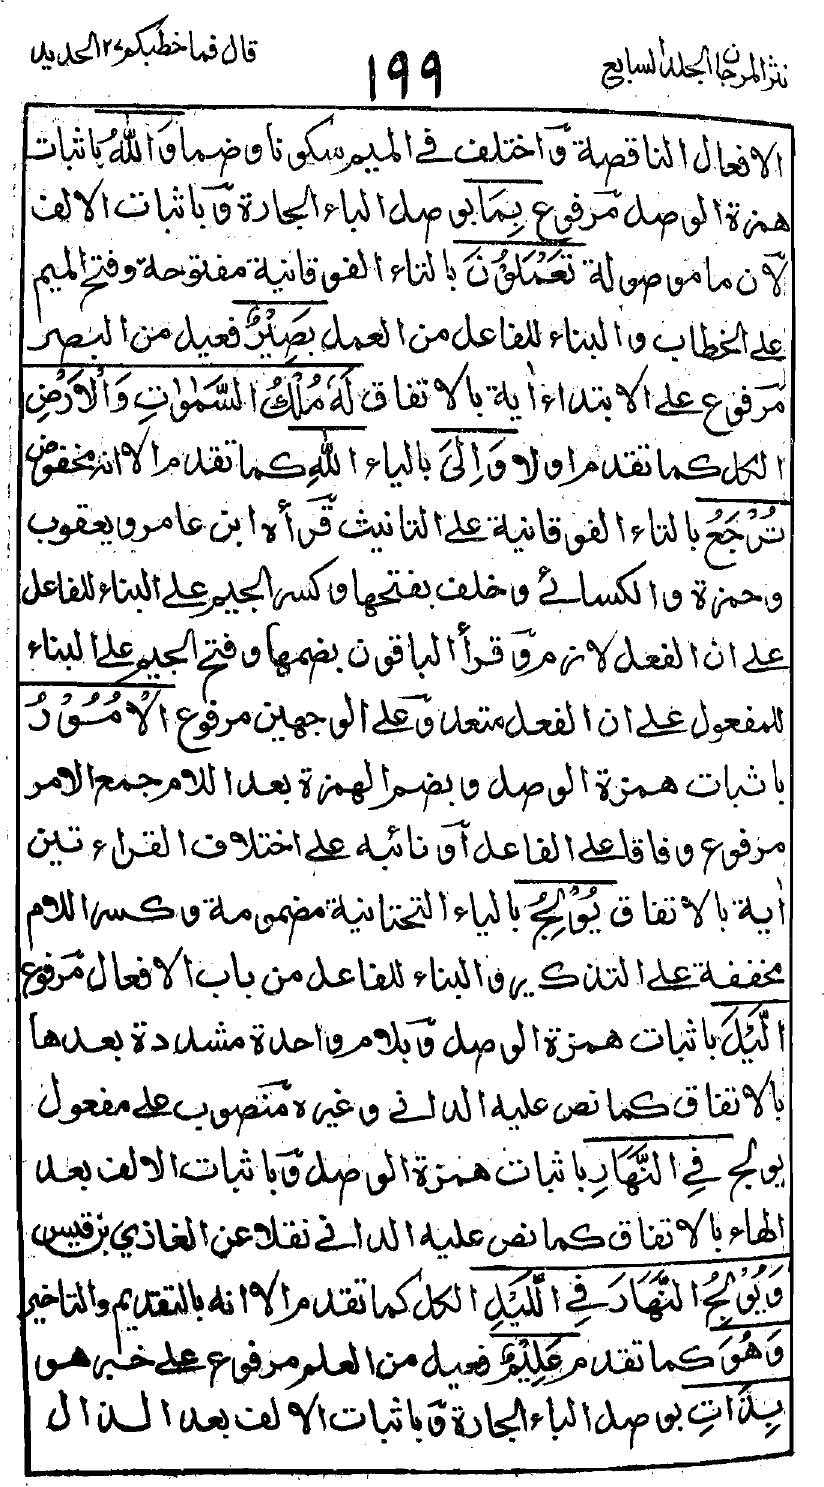 نثر المرجان الجلد السابع
١٩٩
قال فما خطبكم ٢٧ الحديد
الافعال الناقصة وَاختلف فے الميم سكونا وضما وَاللّٰهُ باثبات
همزة الوصل مرفوع بِمَا بوصل الباء الجارة وَباثبات الالف
لان ما موصولة تَعْمَلُوْنَ بالتاء الفوقانية مفتوحة وفتح الميم
على الخطاب والبناء للفاعل من العمل بَصِيْرٌ فعيل من البصر
مرفوع على الابتداء اٰية بالاتفاق لَهٗ مُلْكُ السَّمٰوٰتِ وَالْاَرْضِ
الكل كما تقدم اولا وَاِلَى بالياء اللّٰهِ كما تقدم الا انه مخفوض
تُرْجَعُ بالتاء الفوقانية على التانيث قرأه ابن عامر ويعقوب
وحمزة والكسائے وخلف بفتحها وكسر الجيم على البناء للفاعل
على ان الفعل لازم وَقرأ الباقون بضمها وفتح الجيم على البناء
للمفعول على ان الفعل متعد وَعلى الوجهين مرفوع الْاُمُوْرُ
باثبات همزة الوصل وبضم الهمزة بعد اللام جمع الامر
مرفوع وفاقا على الفاعل اَو نائبه على اختلاف القراءتين
اٰية بالاتفاق يُوْلِجُ بالياء التحتانية مضمومة وكسر اللام
مخففة على التذكير والبناء للفاعل من باب الافعال مرفوع
الَّيْلَ باثبات همزة الوصل وَبلام واحدة مشددة بعدها
بالاتفاق كما نص عليه الدانے وغيره مَنصوب على مفعول
يولج فِي النَّهَارِ باثبات همزة الوصل وَباثبات الالف بعد
الهاء بالاتفاق كما نص عليه الدانے نقلا عن الغازي بن قيس
وَيُوْلِجُ النَّهَارَ فِي الَّيْلِ الكل كما تقدم الا انه بالتقديم والتاخير
وَهُوَ كما تقدم عَلِيْمٌ فعيل من العلم مرفوع على خبر هو
بِذَاتِ بوصل الباء الجارة وَباثبات الالف بعد الذال